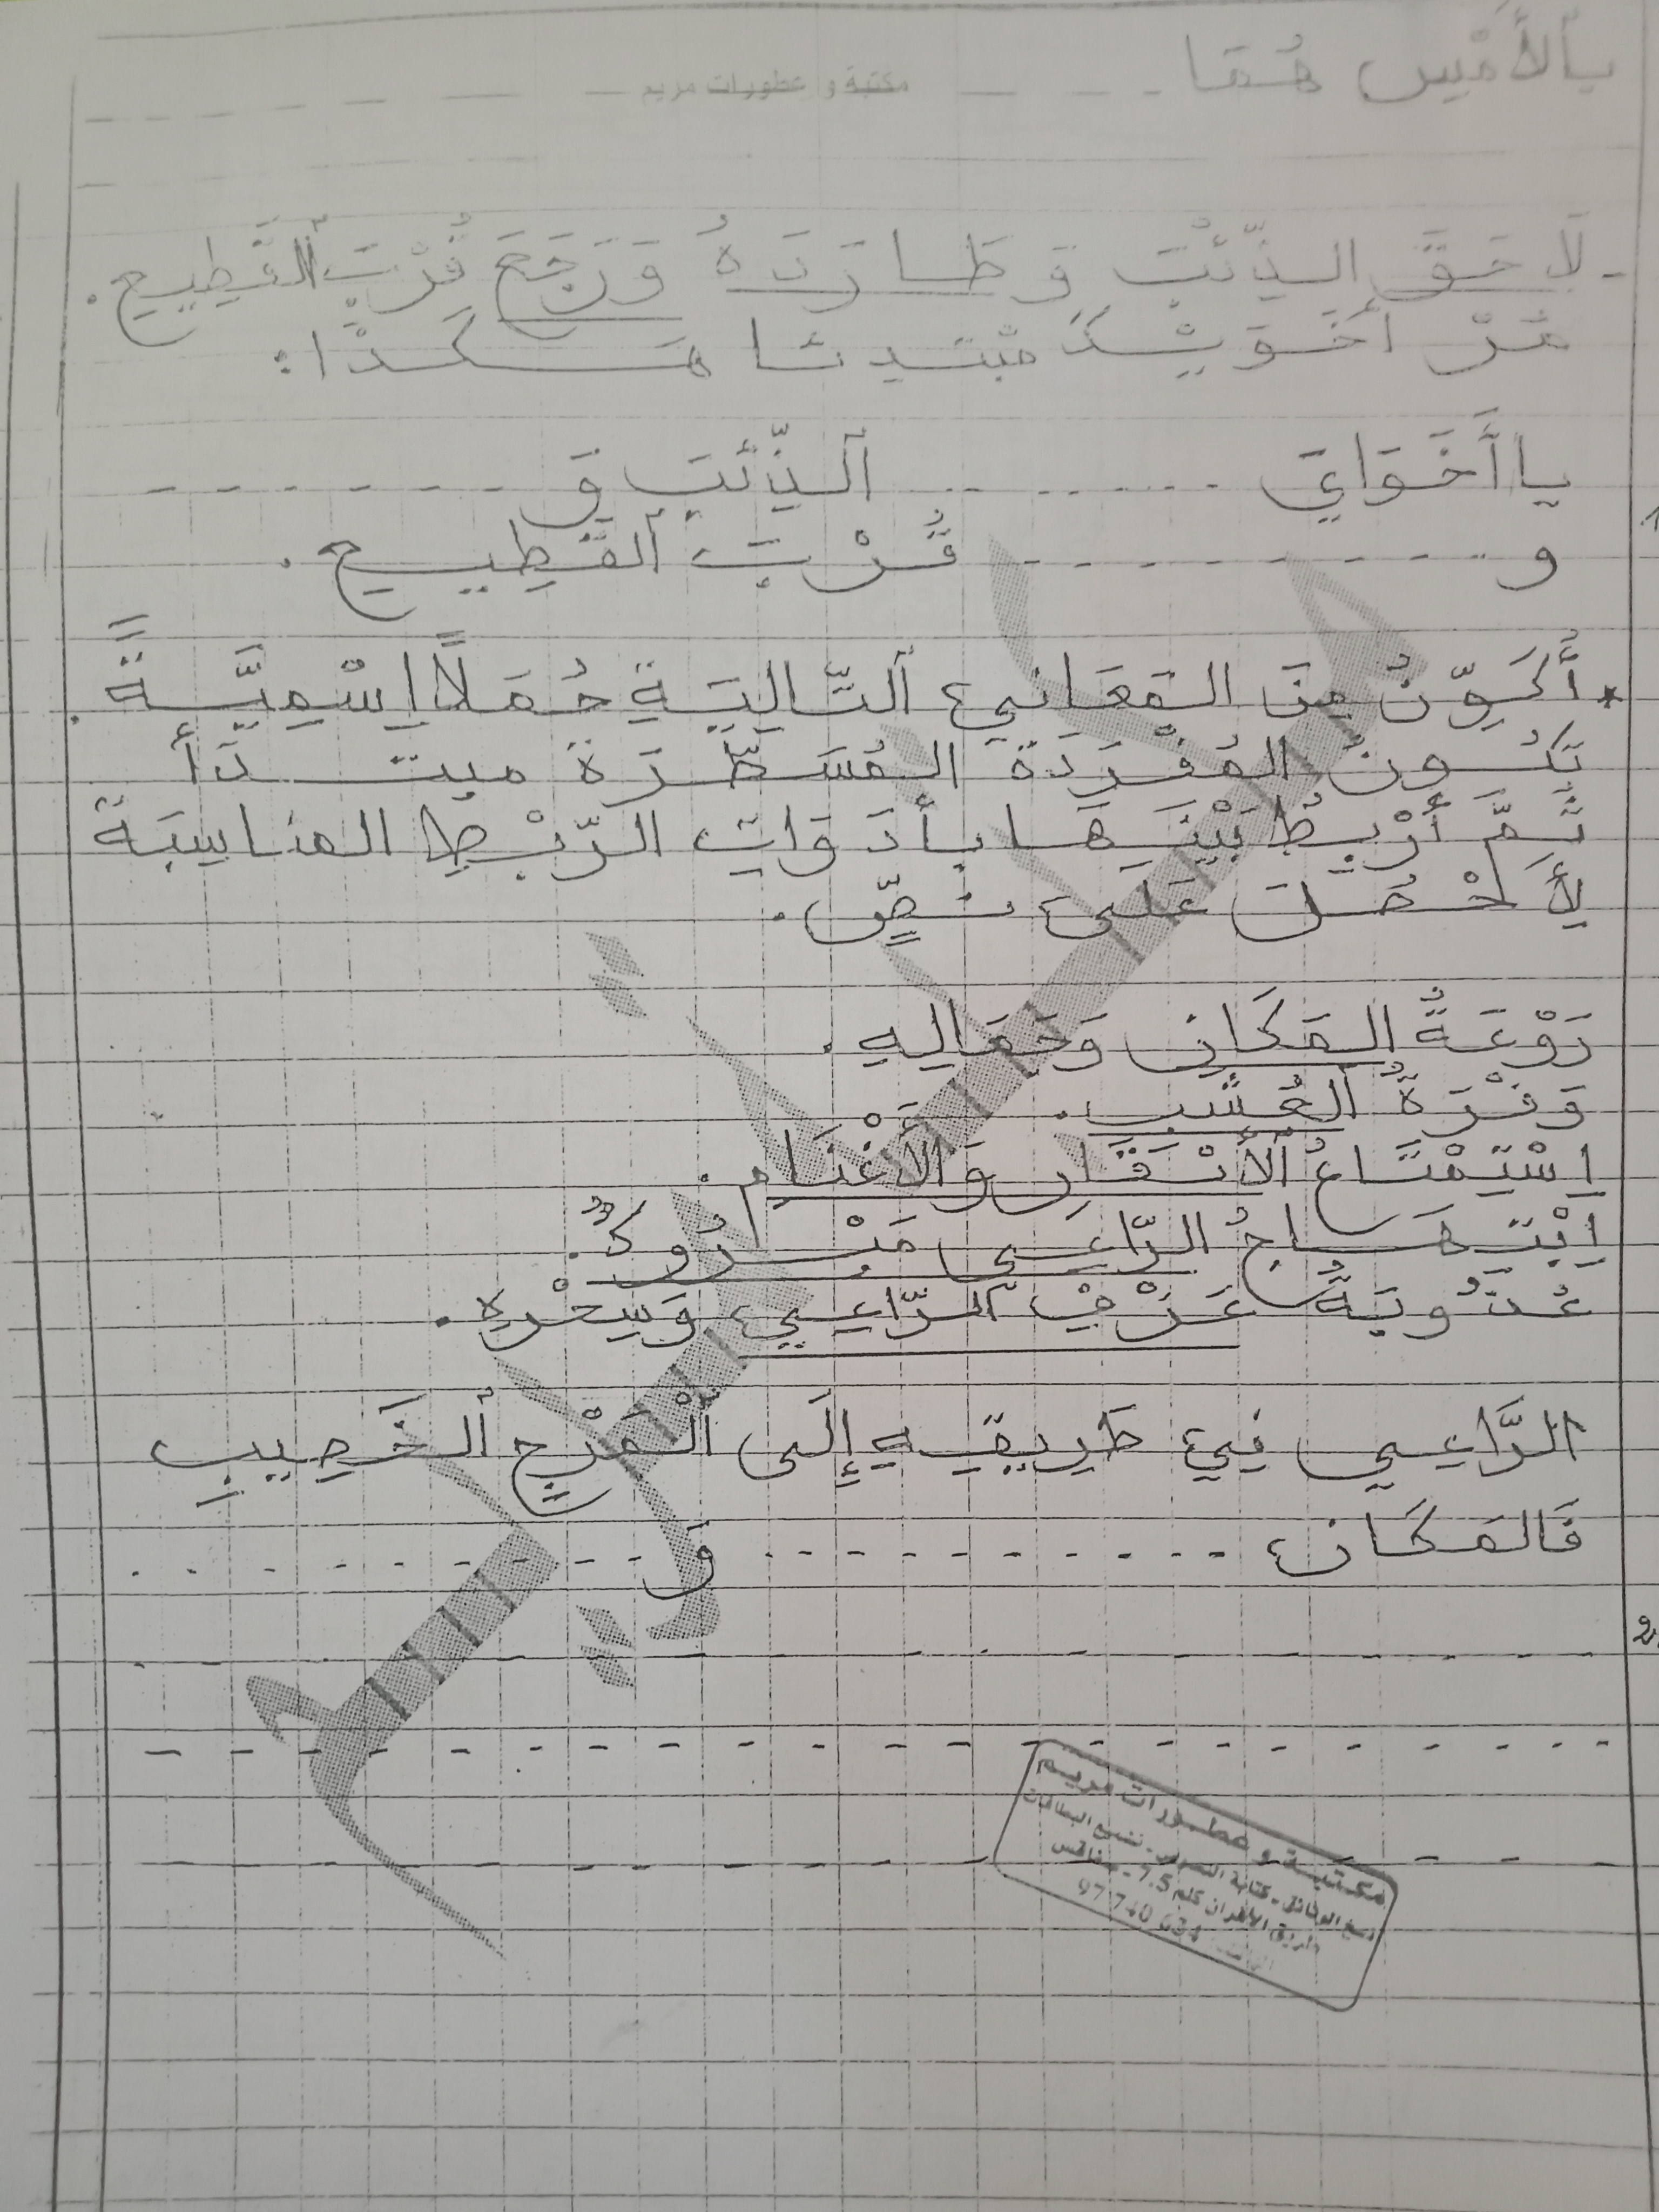 بِالأَمْسِ هُمَا
مكتبة و عطورات مريم
- لَاحَقَ الذِّئْبَ وَ طَارَدَهُ وَرَجَعَ قُرْبَ ٱلقَطِيعِ.
مُرّ أَخَوَيْكَ مبتدئا هَكَذَا:
يا أَخَوَايَ ........ ٱلذِّئْبَ وَ ........
و ........ قُرْبَ ٱلقَطِيعِ.
1
* أُكَوِّنُ مِنَ المَعَانِي ٱلتَّالِيَةِ جُمَلًا اِسْمِيَّةً.
تَكُونُ المُفْرَدَةُ المُسَطَّرَةُ مبتدَأ
ثُمَّ أَرْبِطُ بَيْنَهَا بأدَوَاتِ الرّبْطِ المناسِبَة
لِأَحْصُلَ عَلَى نصٍّ.
رَوْعَةُ المَكَانِ وَجَمَالِهِ.
وَفْرَةُ ٱلعُشْبِ.
اِسْتِمْتَاعُ ٱلأَبْقَارِ وَالأَغْنَامِ.
اِبْتِهَاجُ الرّاعِي مَبْرُوكٌ.
عُذُوبَةُ عَزْفِ ٱلرّاعِي وَسِحْرِهِ.
الرَّاعِي فِي طَرِيقِهِ إِلَى ٱلْمَرْجِ ٱلخَصِيبِ
فَالمَكَانُ ........ وَ ........
2
مكتبة و عطورات مريم
نسخ الوثائق - كتابة النصوص - نسخ البطاقات
طريق الأفران كلم 7.5 - صفاقس
97 740 634